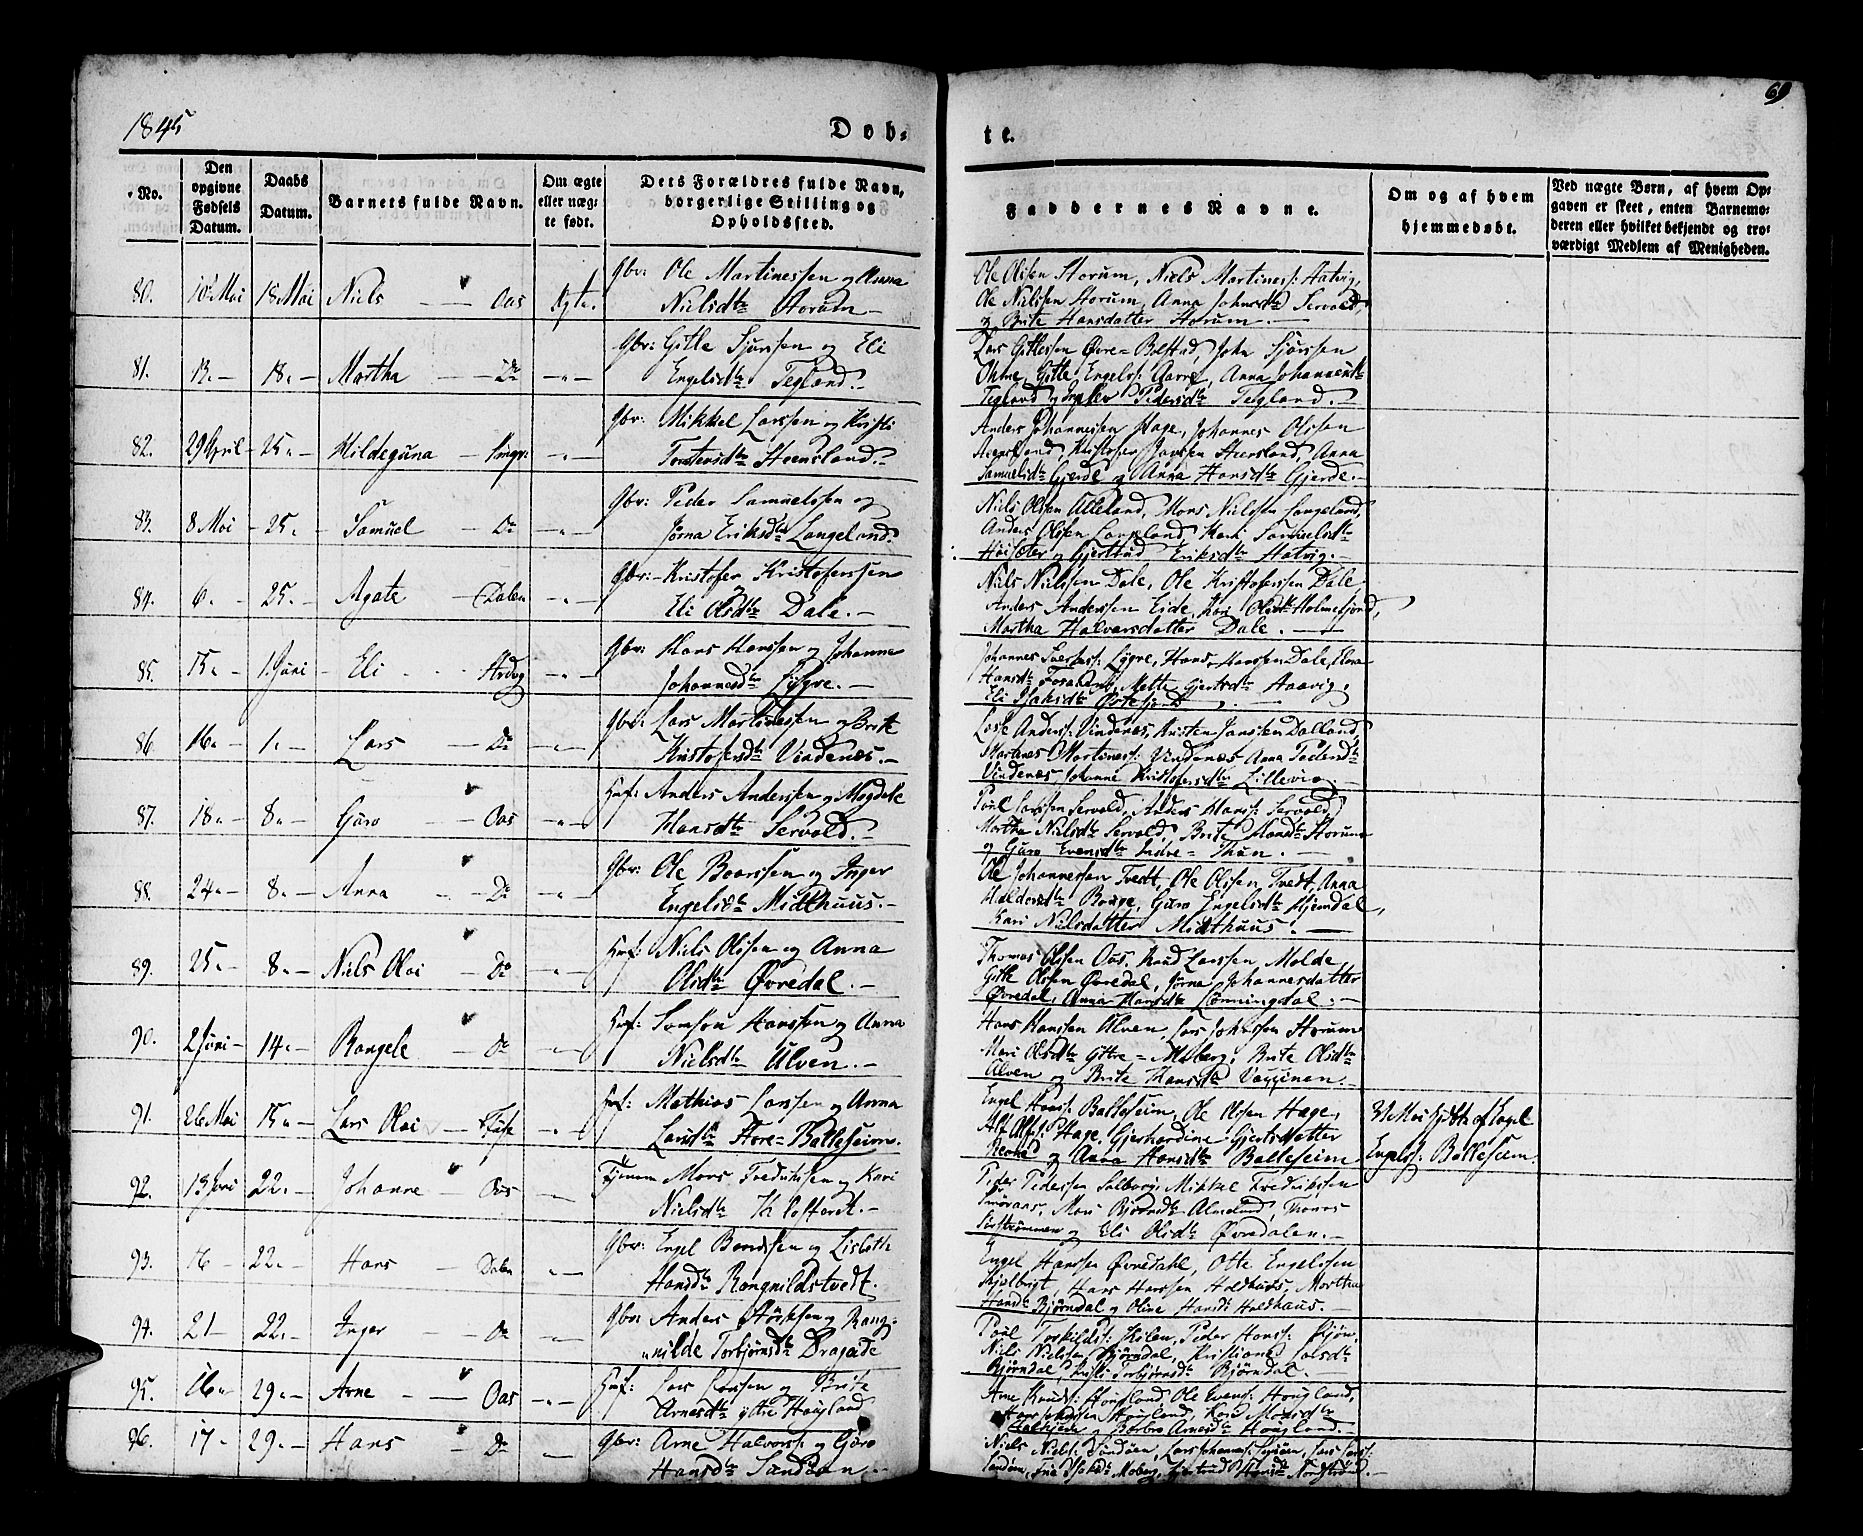 1845
Døb-
te.
69
No.
Den opgivne Fødsels Datum.
Daabs Datum.
Barnets fulde Navn.
Om ægte eller uægte født.
Dets Forældres fulde Navn, borgerlige Stilling og Opholdssted.
Faddernes Navne.
Om og af hvem hjemmedøbt.
Ved uægte Børn, af hvem Opgaven er skeet, enten Barnemoderen eller hvilket bekjendt og troværdigt Medlem af Menigheden.
80. 10 Mai 18 Mai Niels — Oos Ægte. Gbr: Ole Martinessen og Anna
Nielsdtr Horum —
Ole Olssen Horum, Niels Martiness: Hatvig,
Ole Nielssen Horum, Anna Johnsdtr Servold,
og Brite Hansdatter Horum. —
81. 13. — 18. — Martha — Do —"— Gbr: Gitle Sjurssen og Eli
Engelsdtr Tegland. —
Lars Gitlessen Øvre=Bolstad, John Sjurssen
Gitle Engelss: Anna Johannesdtr
Tegland og Pedersdtr Tegland. —
82. 29 April 25. — Hildeguna — —"— Gbr: Mikkel Larssen og Kristi
Torstensdtr Steensland. —
Anders Johannessen Hage, Johannes Olssen
Kristofer Steensland, Anna
Samuelsdtr Gjerde og Anna Hansdtr Gjerde. —
83. 8 Mai 25. — Samuel — Do —"— Gbr: Peder Samuelssen og
Jørna Eriksdtr Langeland.
Niels Olssen Alleland, Mons Nielssen Langeland,
Anders Olssen Kari Samuelsdtr
og Gjertrud Eriksdtr Hatvig. —
84. 6. — 25. — Agate — Dalen —"— Gbr: — Kristofer Kristoferssen
Eli Olsdtr Dale. —
Niels Nielssen Dale, Ole Kristoferssen Dale
Anders Anderssen Eide, Kari Olsdtr Holmefjord,
Martha Halvorsdatter Dale. —
85. 15. — 1. Juni Eli —"— Gbr: Hans Hanssen og Johanna
Johannesdtr Lygre. —
Johannes Lygre, Hans Hanssen Dale,
Hansdtr Mette Gjertsdtr Aarvig,
Eli Isaksdtr
86. 16. — 1. — Lars — Do —"— Gbr: Lars Martinessen og Brite
Kristofersdtr Vindenæs. —
Anderss: Vindenæs, Kristen Dalland,
Martines Martiness: Vindenæs Anna Pedersdtr
Vindenæs, Johanne Kristofersdtr Lillevig. —
87. 18. — 8. — Guro Oos —"— Huf: Anders Anderssen og Magdele
Hansdtr Servold. —
Poul Larssen Servold, Anders Hanss: Servold,
Martha Nielsdtr Servold, Brite Hansdtr Horum
og Guro Evensdtr Indre=Thun. —
88. 24. — 8. — Anna — Do —"— Gbr: Ole Baarssen og Inger
Engelsdtr Midthuus. —
Ole Johannessen Tvedt, Ole Olssen Tvedt, Anna
Haldorsdtr Borge, Guro Engelsdtr Hjemdal,
Kari Nielsdatter Midthuus. —
89. 25. — 8. — Niels Olai — Do —"— Huf: Niels Olssen og Anna
Olsdtr Øvredal. —
Thomas Olssen Oos, Knud Larssen Molde,
Gitle Olssen Øvredal, Jørna Johannesdatter
Øvredal, Anna Hansdtr Lønningdal. —
90. 2 Juni — 14. — Rangele — Do —"— Huf: Samson Hanssen og Anna
Nielsdtr Ulven. —
Hans Hanssen Ulven, Lars Johnssen Horum
Mari Olsdtr Ytre=Moberg, Brite Olsdtr
Ulven og Brite Hansdtr
91. 26 Mai 15. — Lars Olai — Fuse —"— Huf: Mathias Larssen og Anna
Larsdtr Store=Balleseim.
Engel Hanss: Balleseim, Ole Olssen Hage,
Alf Alfs: Hage, Gjerhardine Gjertsdatter
og Anna Hansdtr Balleseim
31 Mai hjdbt af Engel
Engelss: Balleseim.
92. 13 Juni 22. — Johanne — Oos —"— Mons Fredrikssen og Kari
Nielsdtr Klosteret. —
Peder Pederssen Solberg, Mikkel Fredrikssen
Mari Bjørnsdtr Almeland, Thomas
og Eli Olsdtr Øvredalen. —
93. 16 — 22. — Hans Dalen —"— Gbr: Engel Bendssen og Lisbeth
Hansdtr Rongnildstvedt.
Engel Hanssen Øvredahl, Otte Engelssen
Skjelbreit, Hans Hanssen Holdhuus, Martha
Hansdtr Bjørndal og Oline Hansdtr Holdhuus. —
94. 21 — 22. — Inger — Do —"— Gbr: Anders og Rang-
nilde Torbjørnsdtr Dragade
Poul Torkildss: Kilen, Peder Hanss:
Niels Nielssen Bjørndal, Kristiane
Bjørndal, Kristi Torbjørnsdtr Bjørndal. —
95. 16. — 29. — Arne — Oos —"— Huf: Lars Larssen og Brite
Arnesdtr Ytre Hougland
Arne Knuds: Hougland, Ole Evens: Hougland,
Hougland, Kari Monsdtr
og Barbro Arnesdtr Hougland. —
96. 17 — 29. — Hans — Do —"— Gbr: Arne Halvorss: og Guro
Hansdtr Sandøen. —
Niels Nielss: Sandøen, Lars Johanness: Lars Larss:
Sandøen, Moberg, Gjertrud Hansdtr Nordstrøno. —